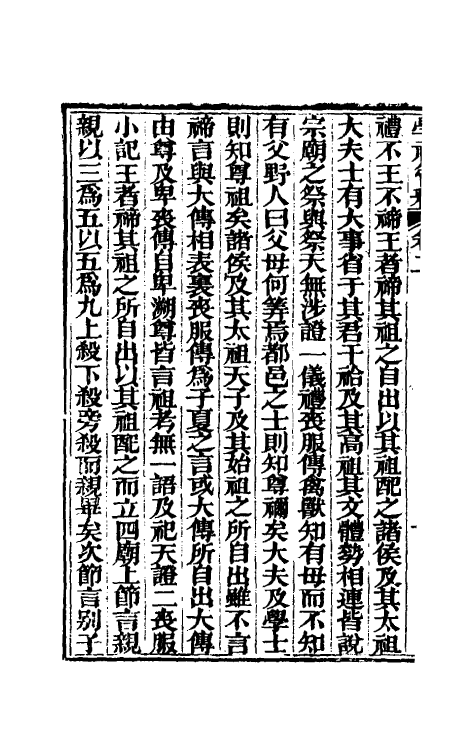 禮不王不禘王者禘其祖之自出以其祖配之諸侯及其太祖
大夫士有大事省于其君干祫及其高祖其文體勢相連皆說
宗廟之祭與祭天無涉證一儀禮喪服傳禽獸知有母而不知
有父野人曰父母何筭焉都邑之士則知尊禰矣大夫及學士
則知尊祖矣諸侯及其太祖天子及其始祖之所自出雖不言
禘言與大傳相表裏喪服傳爲子夏之言或大傳所自出大傳
由尊及卑喪傳自卑溯尊皆言祖考無一語及祀天證二喪服
小記王者禘其祖之所自出以其祖配之而立四廟上節言親
親以三爲五以五爲九上殺下殺旁殺而親畢矣次節言別子